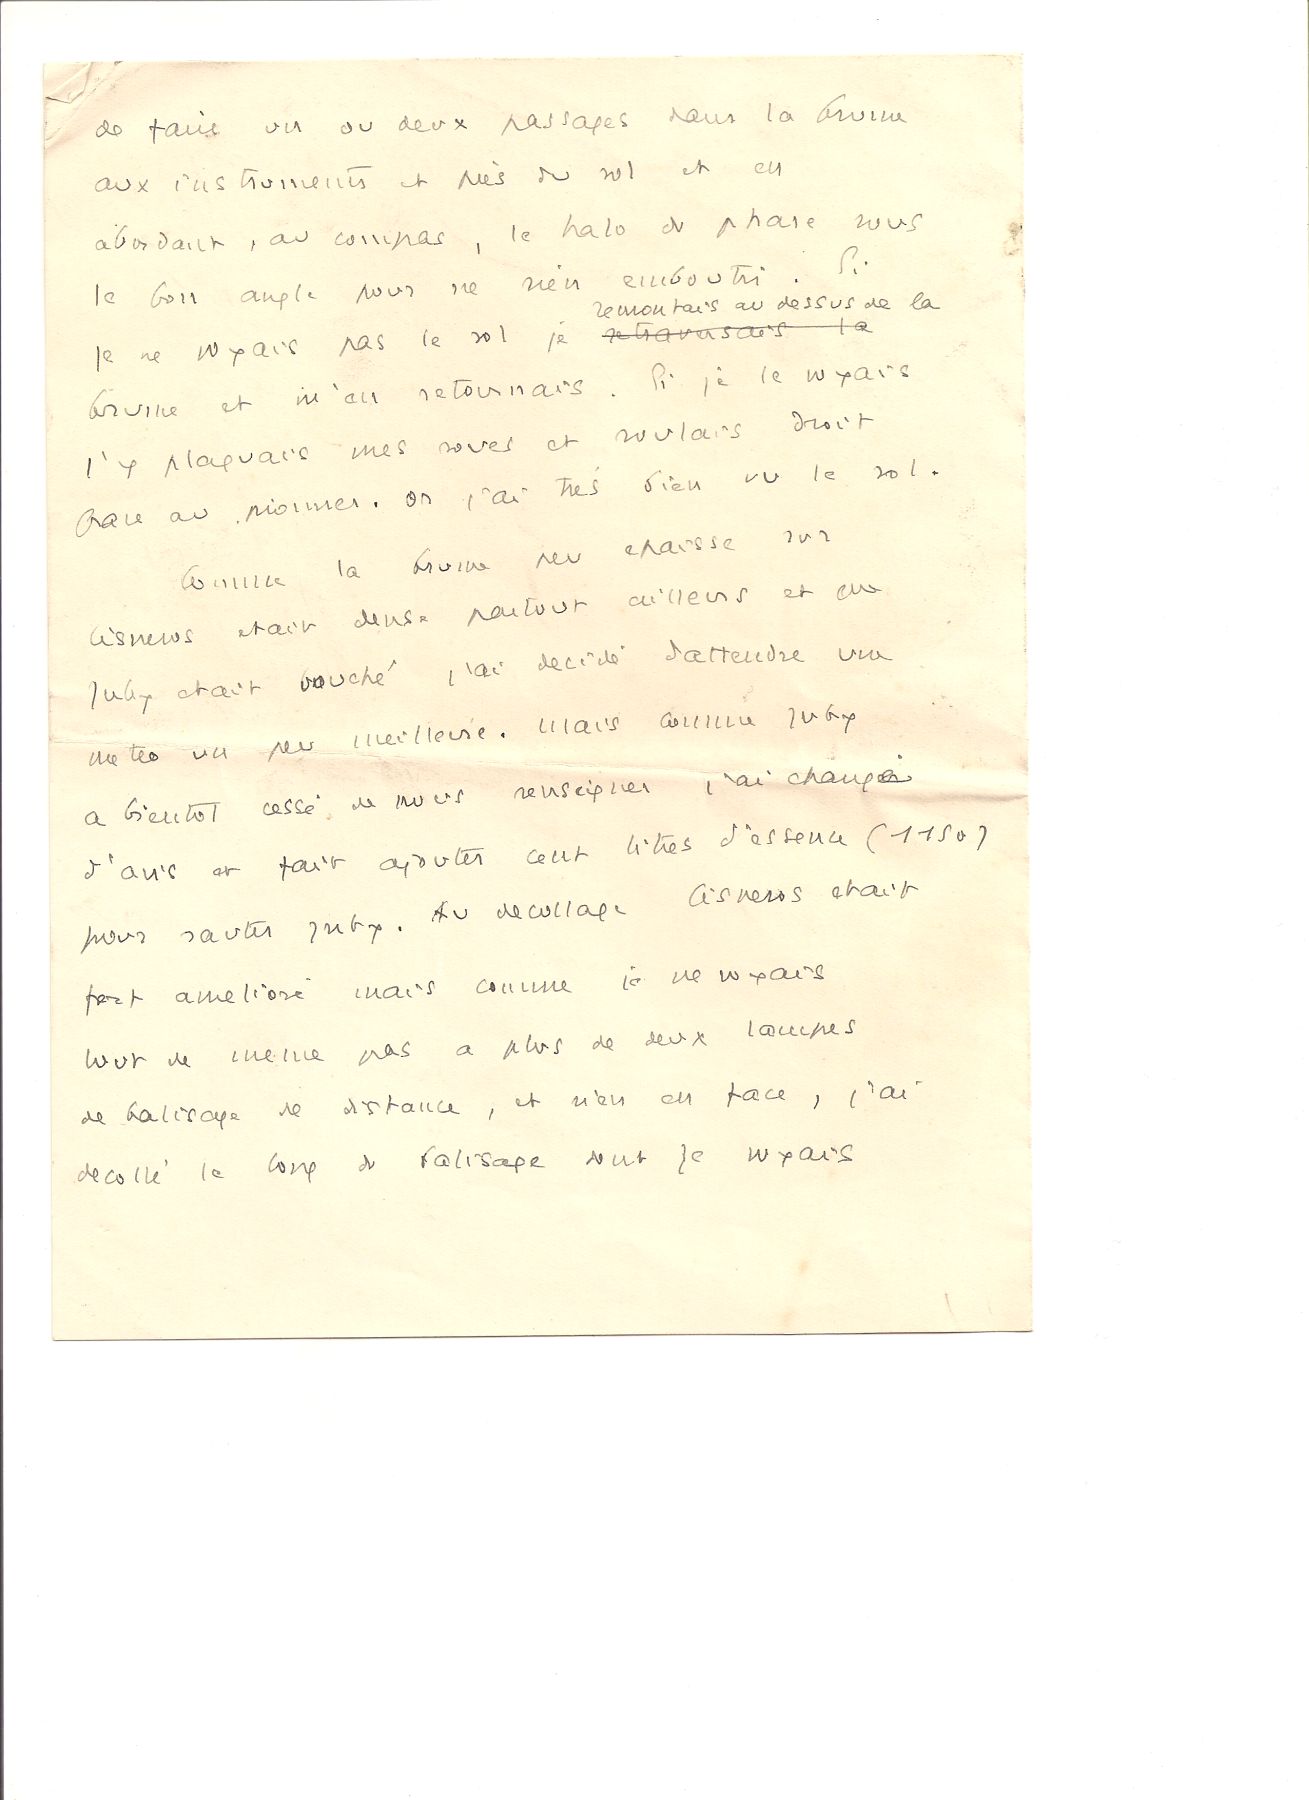 de faire un ou deux passages dans la brume
aux instruments et près du sol et en
abordant, au compas, le halo du phare sous
le bon angle pour ne rien emboutir. Si
remontais au dessus de la
je ne voyais pas le sol je retraversais la
brume et m'en retournais. Si je le voyais
j'y plaquais mes roues et roulais droit
grace au pionnier. Or j'ai très bien vu le sol.
Comme la brume peu epaisse sur
Cisneros etait dense partout ailleurs et que
Juby etait bouché j'ai decidé d'attendre une
meteo un peu meilleure. Mais comme Juby
a bientot cessé de nous renseigner j'ai changé
d'avis et fait ajouter cent litres d'essence (1150)
pour sauter Juby. Au decollage Cisneros etait
fort amelioré mais comme je ne voyais
tout de meme pas a plus de deux lampes
de balisage de distance, et rien en face, j'ai
decollé le long du balisage dont je voyais